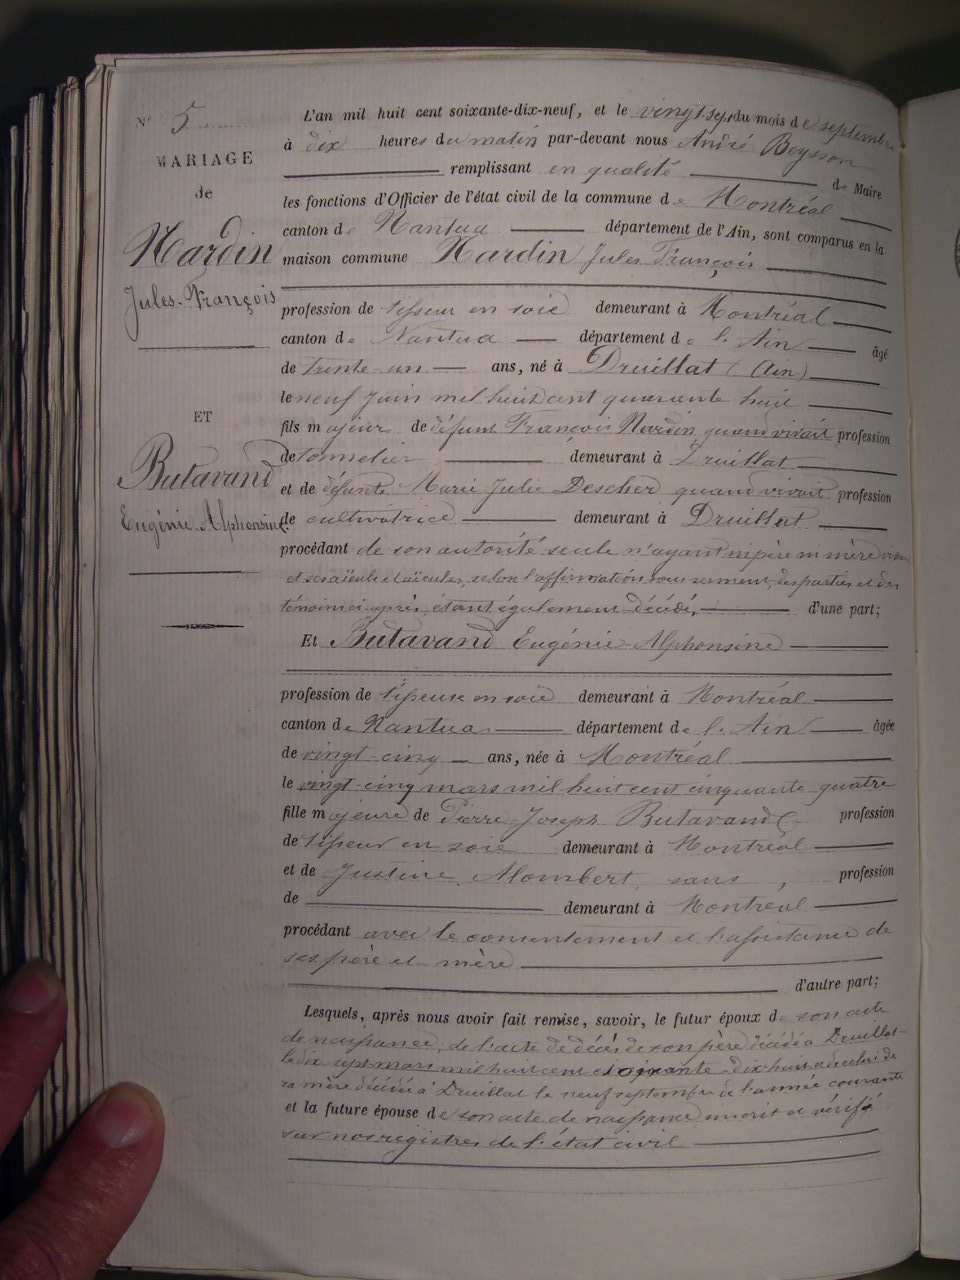 N° 5
MARIAGE
de
Nardin
Jules-François
ET
Butavand
Eugénie-Alphonsine
L'an mil huit cent soixante-dix-neuf, et le vingt-sept du mois de septembre
à dix heures du matin par-devant nous André Beysson
remplissant en qualité de Maire
les fonctions d'Officier de l'état civil de la commune de Montréal
canton de Nantua département de l'Ain, sont comparus en la
maison commune Nardin Jules François
profession de tisseur en soie demeurant à Montréal
canton de Nantua département de l'Ain âgé
de trente-un ans, né à Druillat (Ain)
le neuf juin mil huit cent quarante huit
fils majeur de défunt François Nardin quand vivait profession
de tonnelier demeurant à Druillat
et de défunte Marie Julie Descher quand vivait profession
de cultivatrice demeurant à Druillat
procédant de son autorité seule n'ayant ni père ni mère
et ses aïeuls et aïeules, selon l'affirmation sous serment, des parties et des
témoins ci-après étant également décédés, d'une part;
Et Butavand Eugénie-Alphonsine
profession de tisseuse en soie demeurant à Montréal
canton de Nantua département de l'Ain âgée
de vingt-cinq ans, née à Montréal
le vingt-cinq mars mil huit cent cinquante quatre
fille majeure de Pierre-Joseph Butavand profession
de tisseur en soie demeurant à Montréal
et de Justine Alombert, sans, profession
de demeurant à Montréal
procédant avec le consentement et l'assistance de
ses père et mère
d'autre part;
Lesquels, après nous avoir fait remise, savoir, le futur époux de son acte
de naissance, de l'acte de décès de son père décédé à Druillat
le dix sept mars mil huit cent soixante dix huit et de celui de
sa mère décédée à Druillat le neuf septembre de l'année courante
et la future épouse de son acte de naissance inscrit et vérifié
sur nos registres de l'état civil